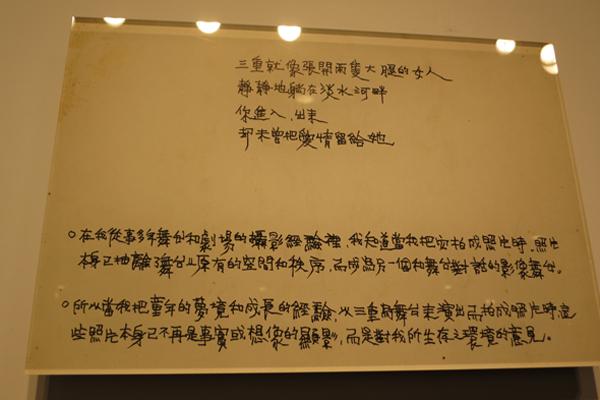 三重就像張開兩隻大腿的女人
靜靜地躺在淡水河畔
你進入,出來
卻未曾把愛情留給她
○在我從事多年舞台和劇場的攝影經驗裡,我知道當我把它拍成照片時,照片
本身已抽離舞台上原有的空間和秩序,而成為另一個和舞台對話的影像舞台。
○所以當我把童年的夢境和成長的經驗,以三重為舞台來演出而拍成照片時,這
些照片本身已不再是事實或想像的顯影,而是對我所生存之環境的意見。